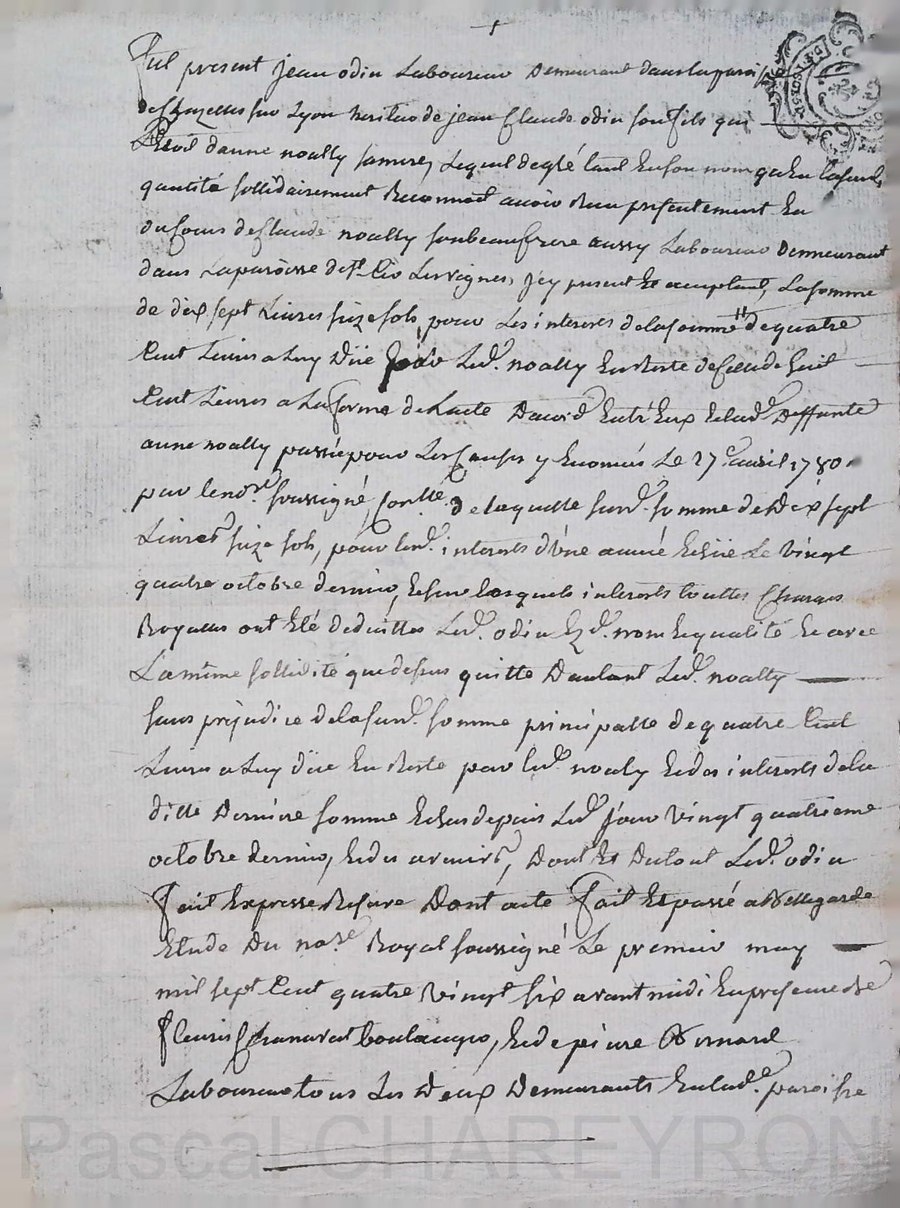 Fut present Jean odin Laboureur Demeurant dans la paroi
de Chazelles sur Lyon heritier de jean Claude odin son fils qui
Létoit danne noally sa mere, Lequel degré tant En son nom qu'En lasusd.
qualité sollidairement Reconnoit avoir Reçu presentement En
deux de Claude noally son beaufrere aussy Laboureur Demeurant
dans La paroisse de St. Cir Les vignes, jcy present Et acceptant, La somme
de dix sept Livres seize sols, pour Les interets de la somme de quatre
Cent Livres a Luy Düe par Led. noally En Reste de Celle de huit
Cent Livres a La forme de Lacte Daccord Entr'Eux Et lad. Deffunte
anne noally passé pour Les Causes y Enoncés Le 27e. avril 1780.
par Le no.re soussigné, de laquelle susd. somme de Dix sept
Livres seize sols, pour lesd. interets d'Une année Echüe Le Vingt
quatre octobre dernier, Et sur Lesquels interests touttes Charges
Royalles ont Eté deduittes Led. odin Ezd. nom Et qualité Et avec
La même sollidité que dessus quitte Dautant Led. noally
sans prejudice de la susd. somme principalle de quatre Cent
Livres a Luy düe En Reste par led. noally Et des interests de la
ditte Derniere somme Echus depuis Led. jour Vingt quatrieme
octobre dernier, Et des avenirs, Dont Et Dutout Led. odin
Fait Expresse Reserve Dont acte Fait Et passé a Bellegarde
Etude Du no.re Royal soussigné Le premier may
mil sept Cent quatre Vingt six avant midi En presence de
fleuri Chanavat boulanger, Et de pierre Bernard
Laboureur tous Les Deux Demeurants En lad. paroisse
Pascal CHAREYRON